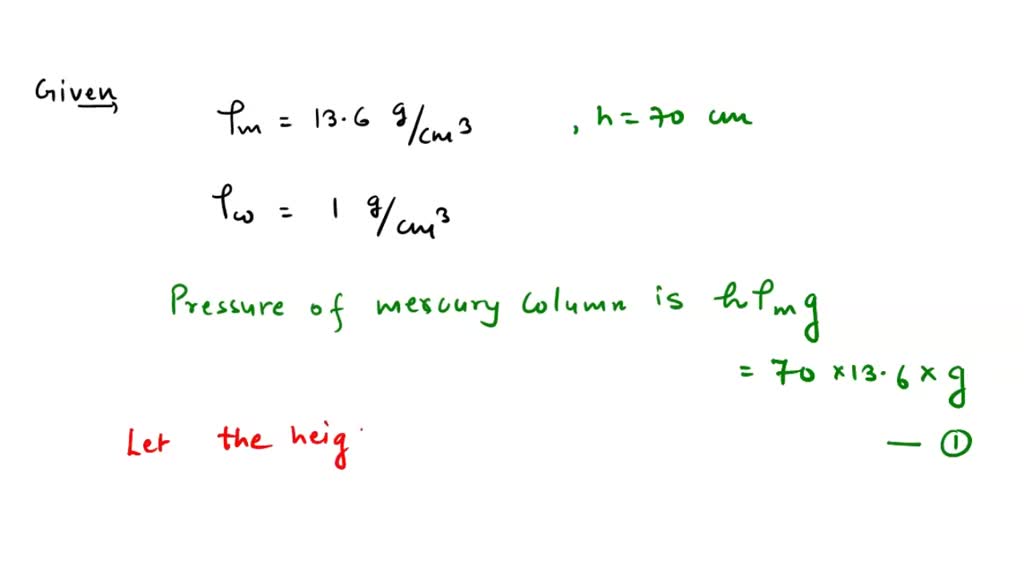 Given
ρm = 13.6 g/cm³ , h = 70 cm
ρω = 1 g/cm³
Pressure of mercury column is hρmg
= 70 × 13.6 × g
Let the heig — ①